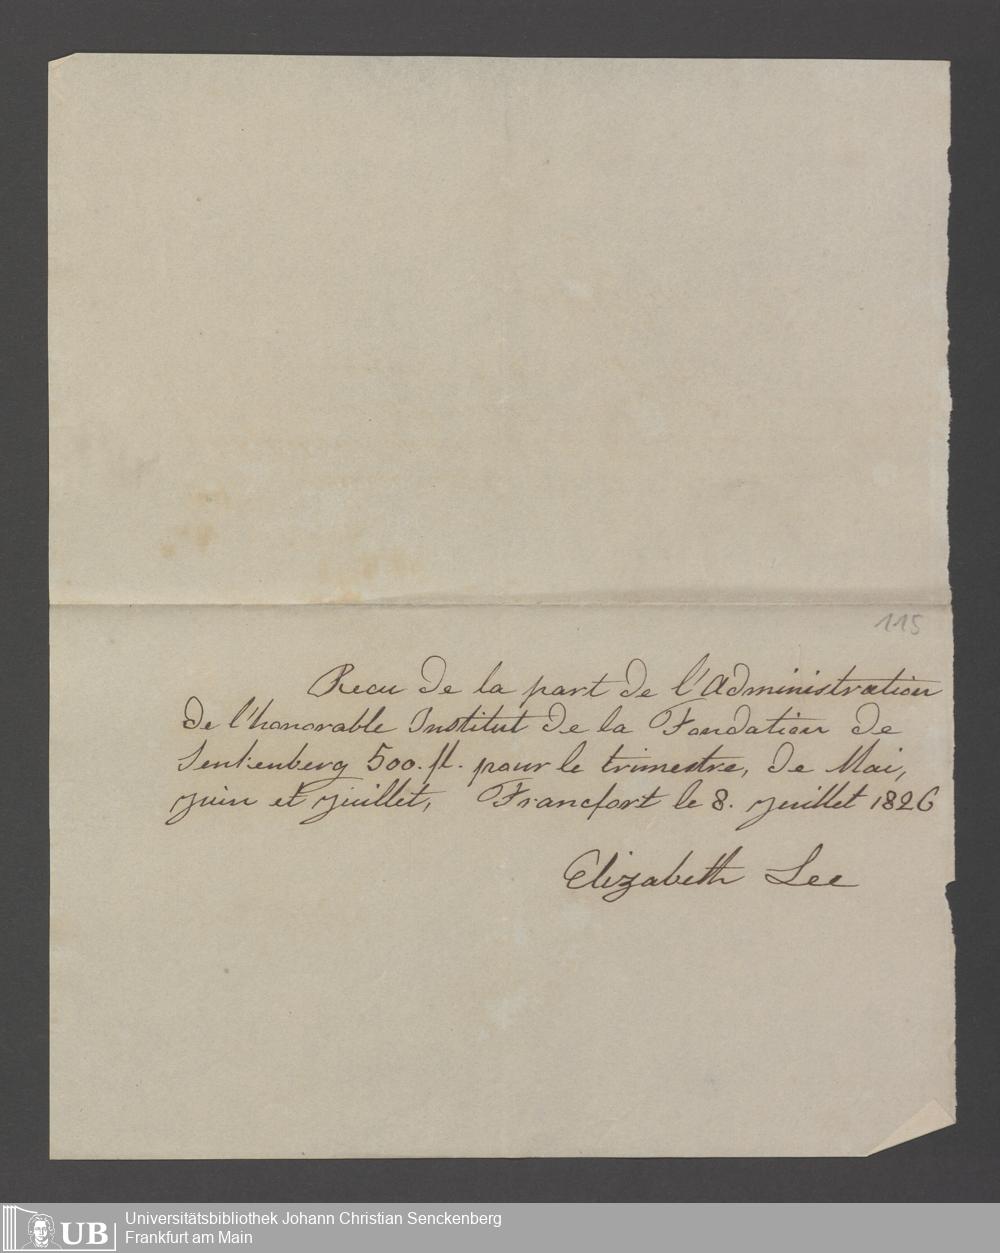 115
Recu de la part de l'Administration
de l'honorable Institut de la Fondation de
Senkenberg 500. fl. pour le trimestre, de Mai,
Juin et Juillet, Francfort le 8. Juillet 1826
Elizabeth Lee
UB
Universitätsbibliothek Johann Christian Senckenberg
Frankfurt am Main